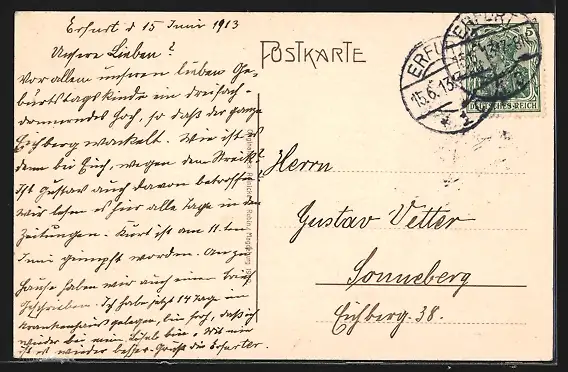 Erfurt d 15 Juni 1913
Unsere Lieben!
Vor allem unseren lieben Ge-
burtstagskinde ein dreifach-
donnerndes Hoch, so daß der ganze
Eichberg wackelt. Wie ist es
denn bei Euch, wegen dem Streik?
Ist Gustav auch davon betroffen,
wir lesen es hier alle Tage in den
Zeitungen. Kurt ist am 11. ten
Juni geimpft worden.
Hause haben wir auch einen Brief
geschrieben. Ich habe jetzt 14 Tage im
Krankenhaus gelegen, bin froh, daß ich
wieder bei
ist es wieder besser. Gruß die Erfurter.
POSTKARTE
ERFURT
15.6.13
ERFURT
5
DEUTSCHES REICH
Herrn
Gustav Vetter
Sonneberg
Eichberg. 38.